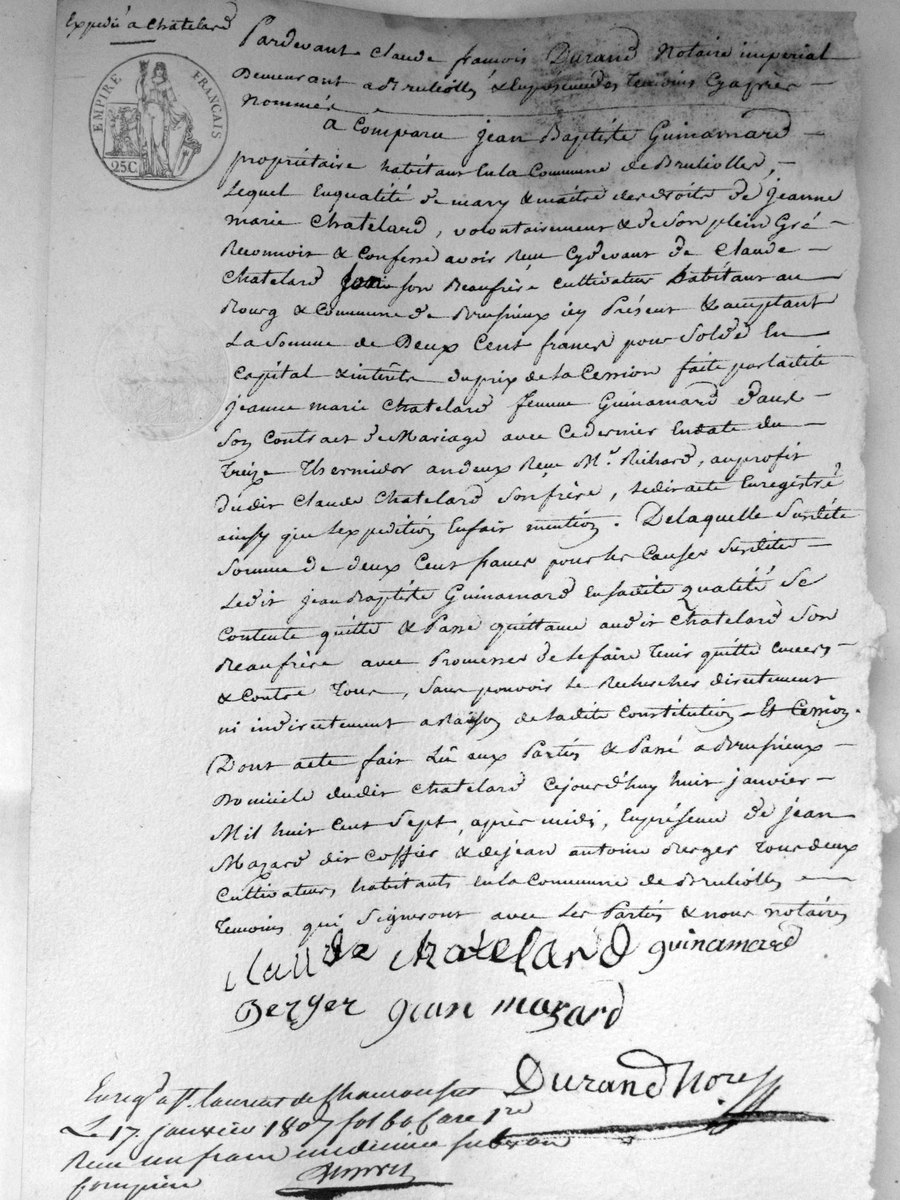 Expedié a Chatelard
EMPIRE FRANÇAIS
25C
Pardevant Claude françois Durand Notaire imperial
Demeurant a Brulioles & En presence des temoins Cy après
Nommés
a Comparu jean Baptiste Guinamard
propriétaire habitant En la Commune de Brulioller,
Lequel En qualité de mary & maitre des Droits de jeanne
marie Chatelard, volontairement & de Son plein Gré
Reconnoit & Confesse avoir Reçu Cydevant de Claude
Chatelard Son Beaufrère Cultivateur habitant au
Bourg & Commune de Brusieux icy Présent & acceptant
La Somme de Deux Cent francs pour Solde En
Capital & intérêts du prix de la Cession faite par ladite
jeanne marie Chatelard femme Guinamard dans
Son Contract de Mariage avec Ce dernier En date du
Treize Thermidor an deux Reçu Mr. Richard, au profit
dudit Claude Chatelard Son frère, Ledit acte Enregistré
ainsy que L'expedition En fait mention. De laquelle Susdite
Somme de deux Cent francs pour les Causes Susdites
Ledit jean Baptiste Guinamard En sadite qualité Se
Contente quitte & Passe quittance audit Chatelard Son
Beaufrère avec Promesses de le faire tenir quitte Envers
& Contre Tous, Sans pouvoir le Rechercher directement
ni indirectement a Raison de ladite Constitution Et Cession.
Dont acte fait Lû aux Parties & Passé a Brusieux
Domicile dudit Chatelard Cejourd'huy huit janvier
Mil huit Cent Sept, après midi, En présence de jean
Mazard dit Coffier & de jean antoine Berger Tous deux
Cultivateurs habitants En la Commune de Brulioles
Temoins qui Signeront avec Les Parties & nous notaire
Claude Chatelard Guinamard
Berger jean mazard
Durand Nore
Enregé a St. laurent de Chamousset
Le 17 janvier 1807 fol 60 Case 1re
Reçu un franc dix centimes Subvon
Comprise